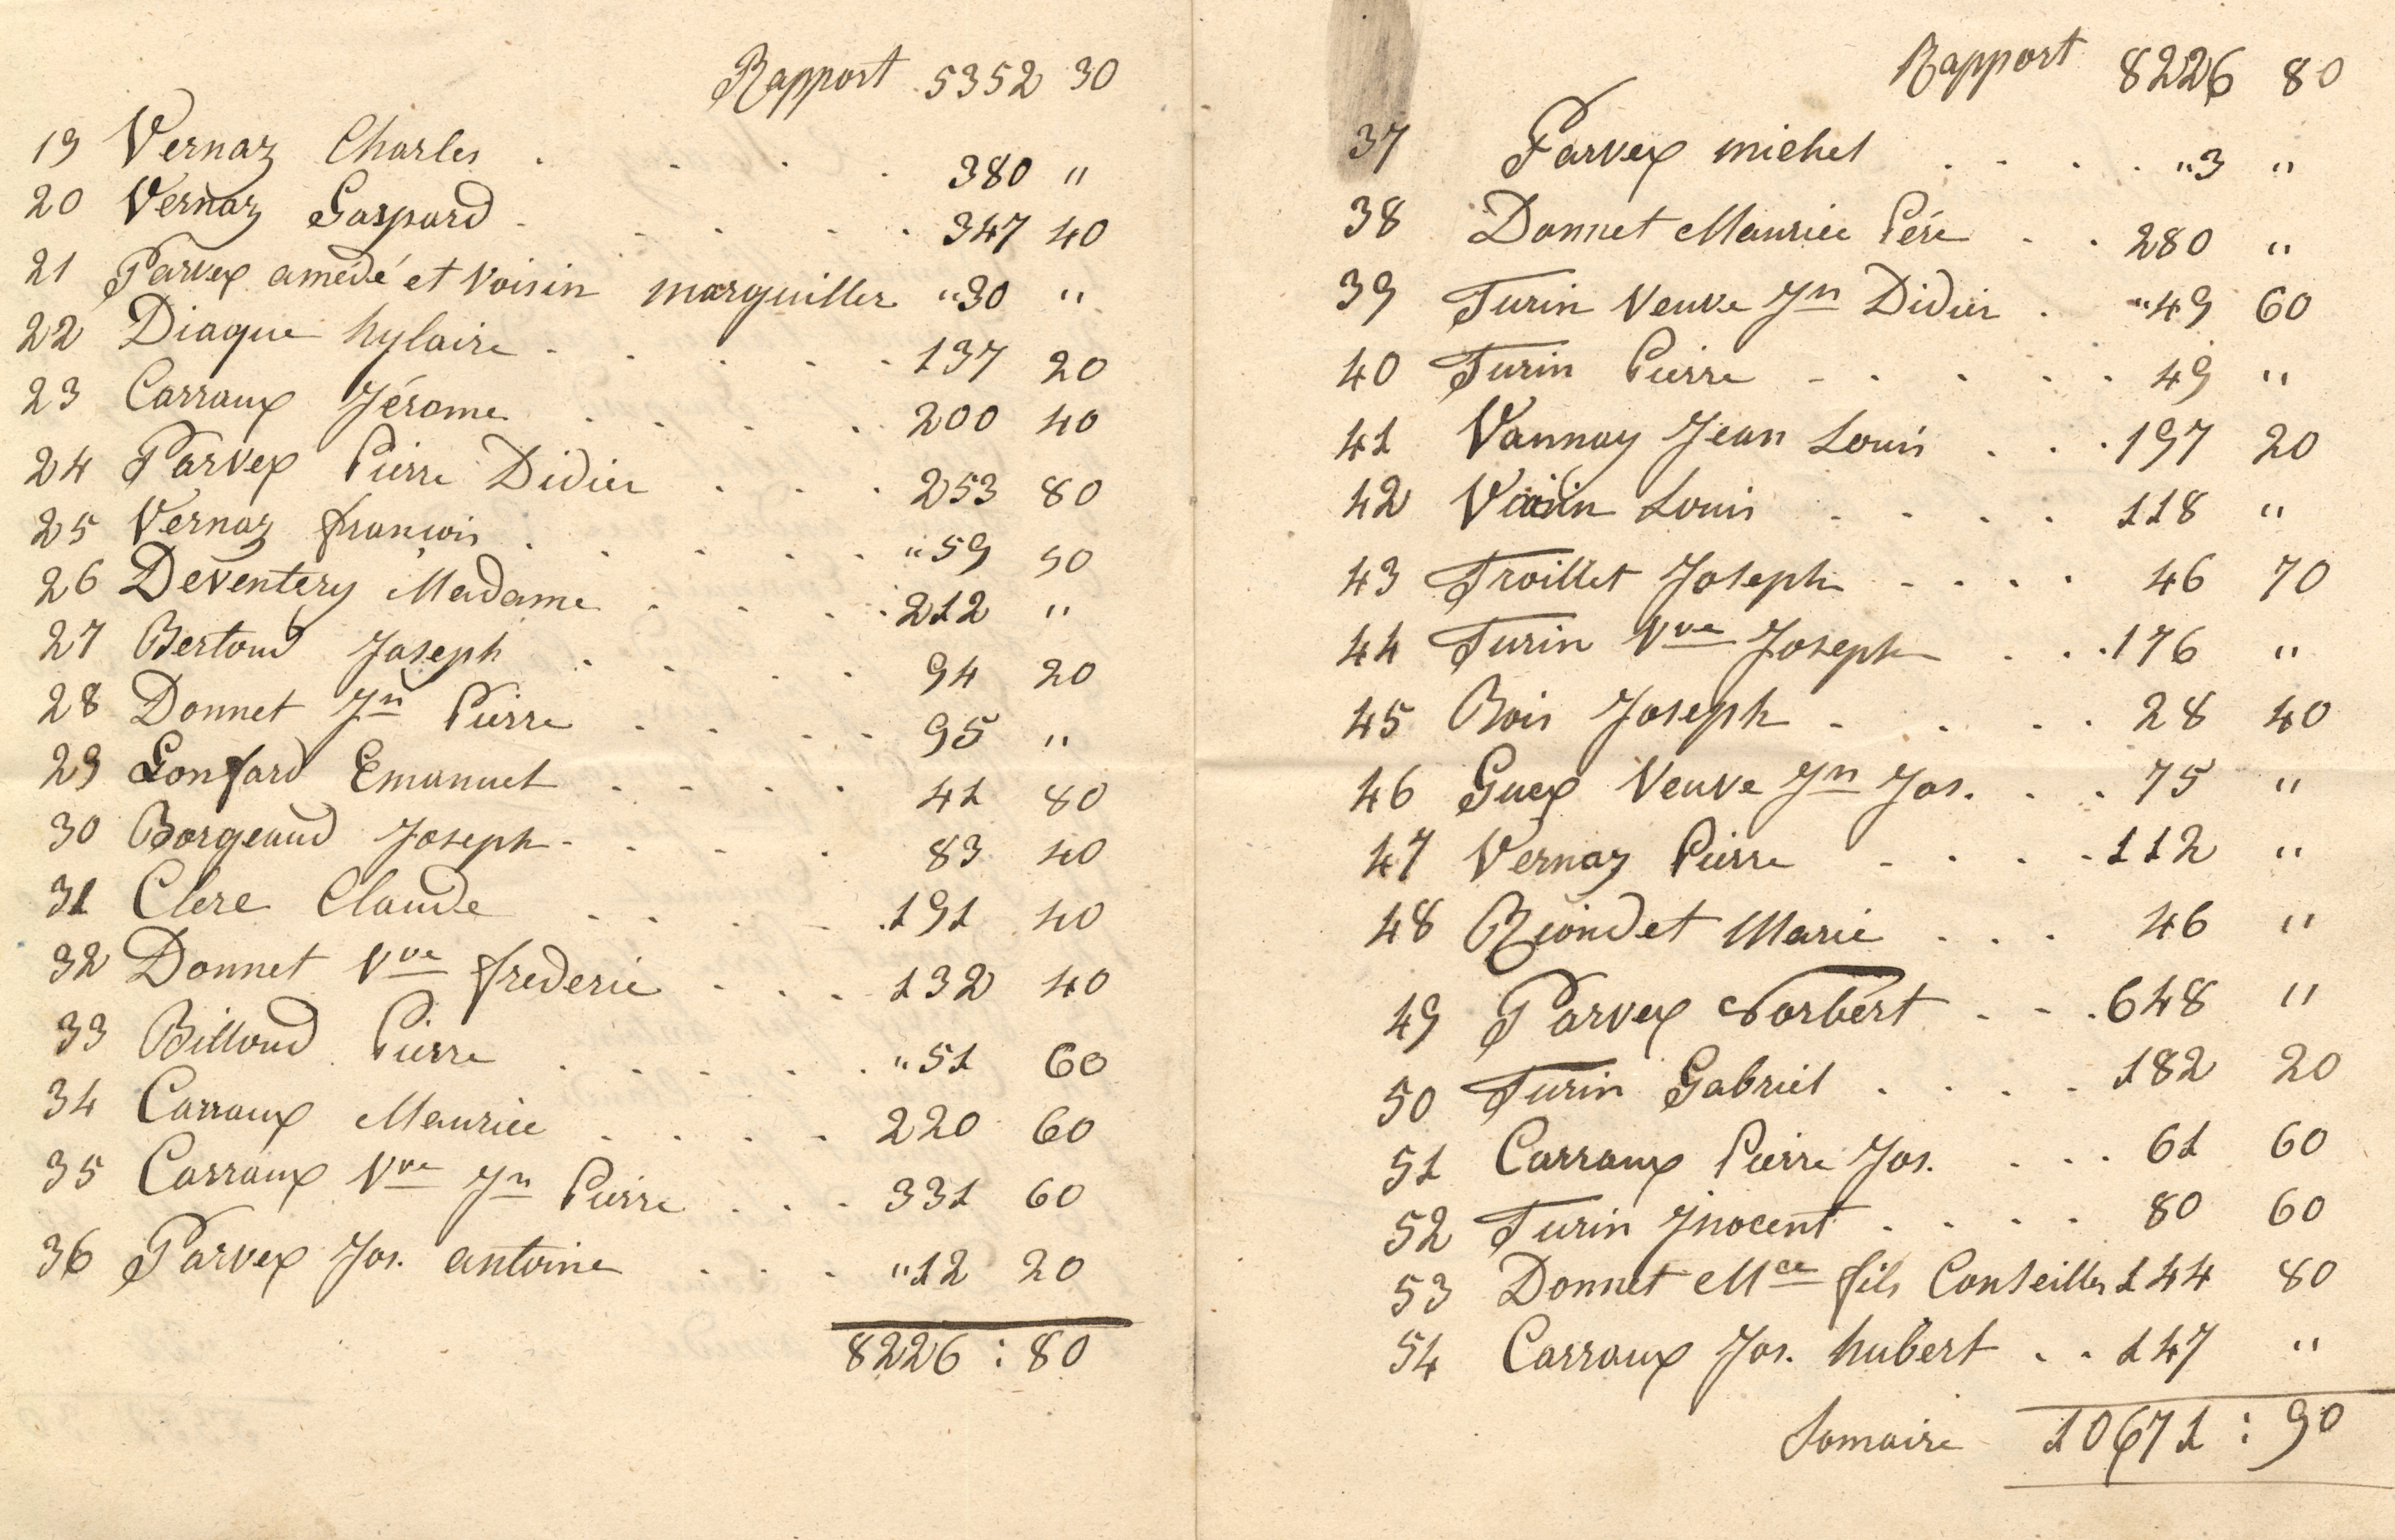 Rapport 5352 30
19 Vernaz Charles . . . . 380 "
20 Vernaz Gaspard . . . . 347 40
21 Parvex amédé et Voisin marguiller "30 "
22 Diaque hylaire . . . . 137 20
23 Carraux Jérome . . . . 200 40
24 Parvex Pierre Didier . . . 253 80
25 Vernaz françois . . . . "59 50
26 Deventery Madame . . . . 212 "
27 Bertoud Joseph . . . . 94 20
28 Donnet Jn Pierre . . . . 95 "
29 Gonfard Emanuel . . . . 41 80
30 Borgeaud Joseph . . . . 83 40
31 Clere Claude . . . . 191 40
32 Donnet Vve frederic . . . 132 40
33 Billoud Pierre . . . . "51 60
34 Carraux Maurice . . . . 220 60
35 Carraux Vve Jn Pierre . . . 331 60
36 Parvex Jos. antoine . . . "12 20
8226 : 80
Rapport 8226 80
37 Parvex michel . . . . "3 "
38 Donnet Maurice Pére . . 280 "
39 Turin Veuve Jn Didier . "49 60
40 Turin Pierre . . . . . 49 "
41 Vannay Jean Louis . . . 197 20
42 Voisin Louis . . . . 118 "
43 Troillet Joseph . . . . 46 70
44 Turin Vve Joseph . . . 176 "
45 Bois Joseph . . . . 28 40
46 Guex Veuve Jn Jos. . . 75 "
47 Vernaz Pierre . . . . 112 "
48 Riondet Marie . . . 46 "
49 Parvex Norbert . . . 648 "
50 Turin Gabriel . . . . 182 20
51 Carraux Pierre Jos. . . . 61 60
52 Turin Jnocent . . . . 80 60
53 Donnet Mce fils Conseiller 144 80
54 Carraux Jos. hubert . . 147 "
Somaire 10671 : 90